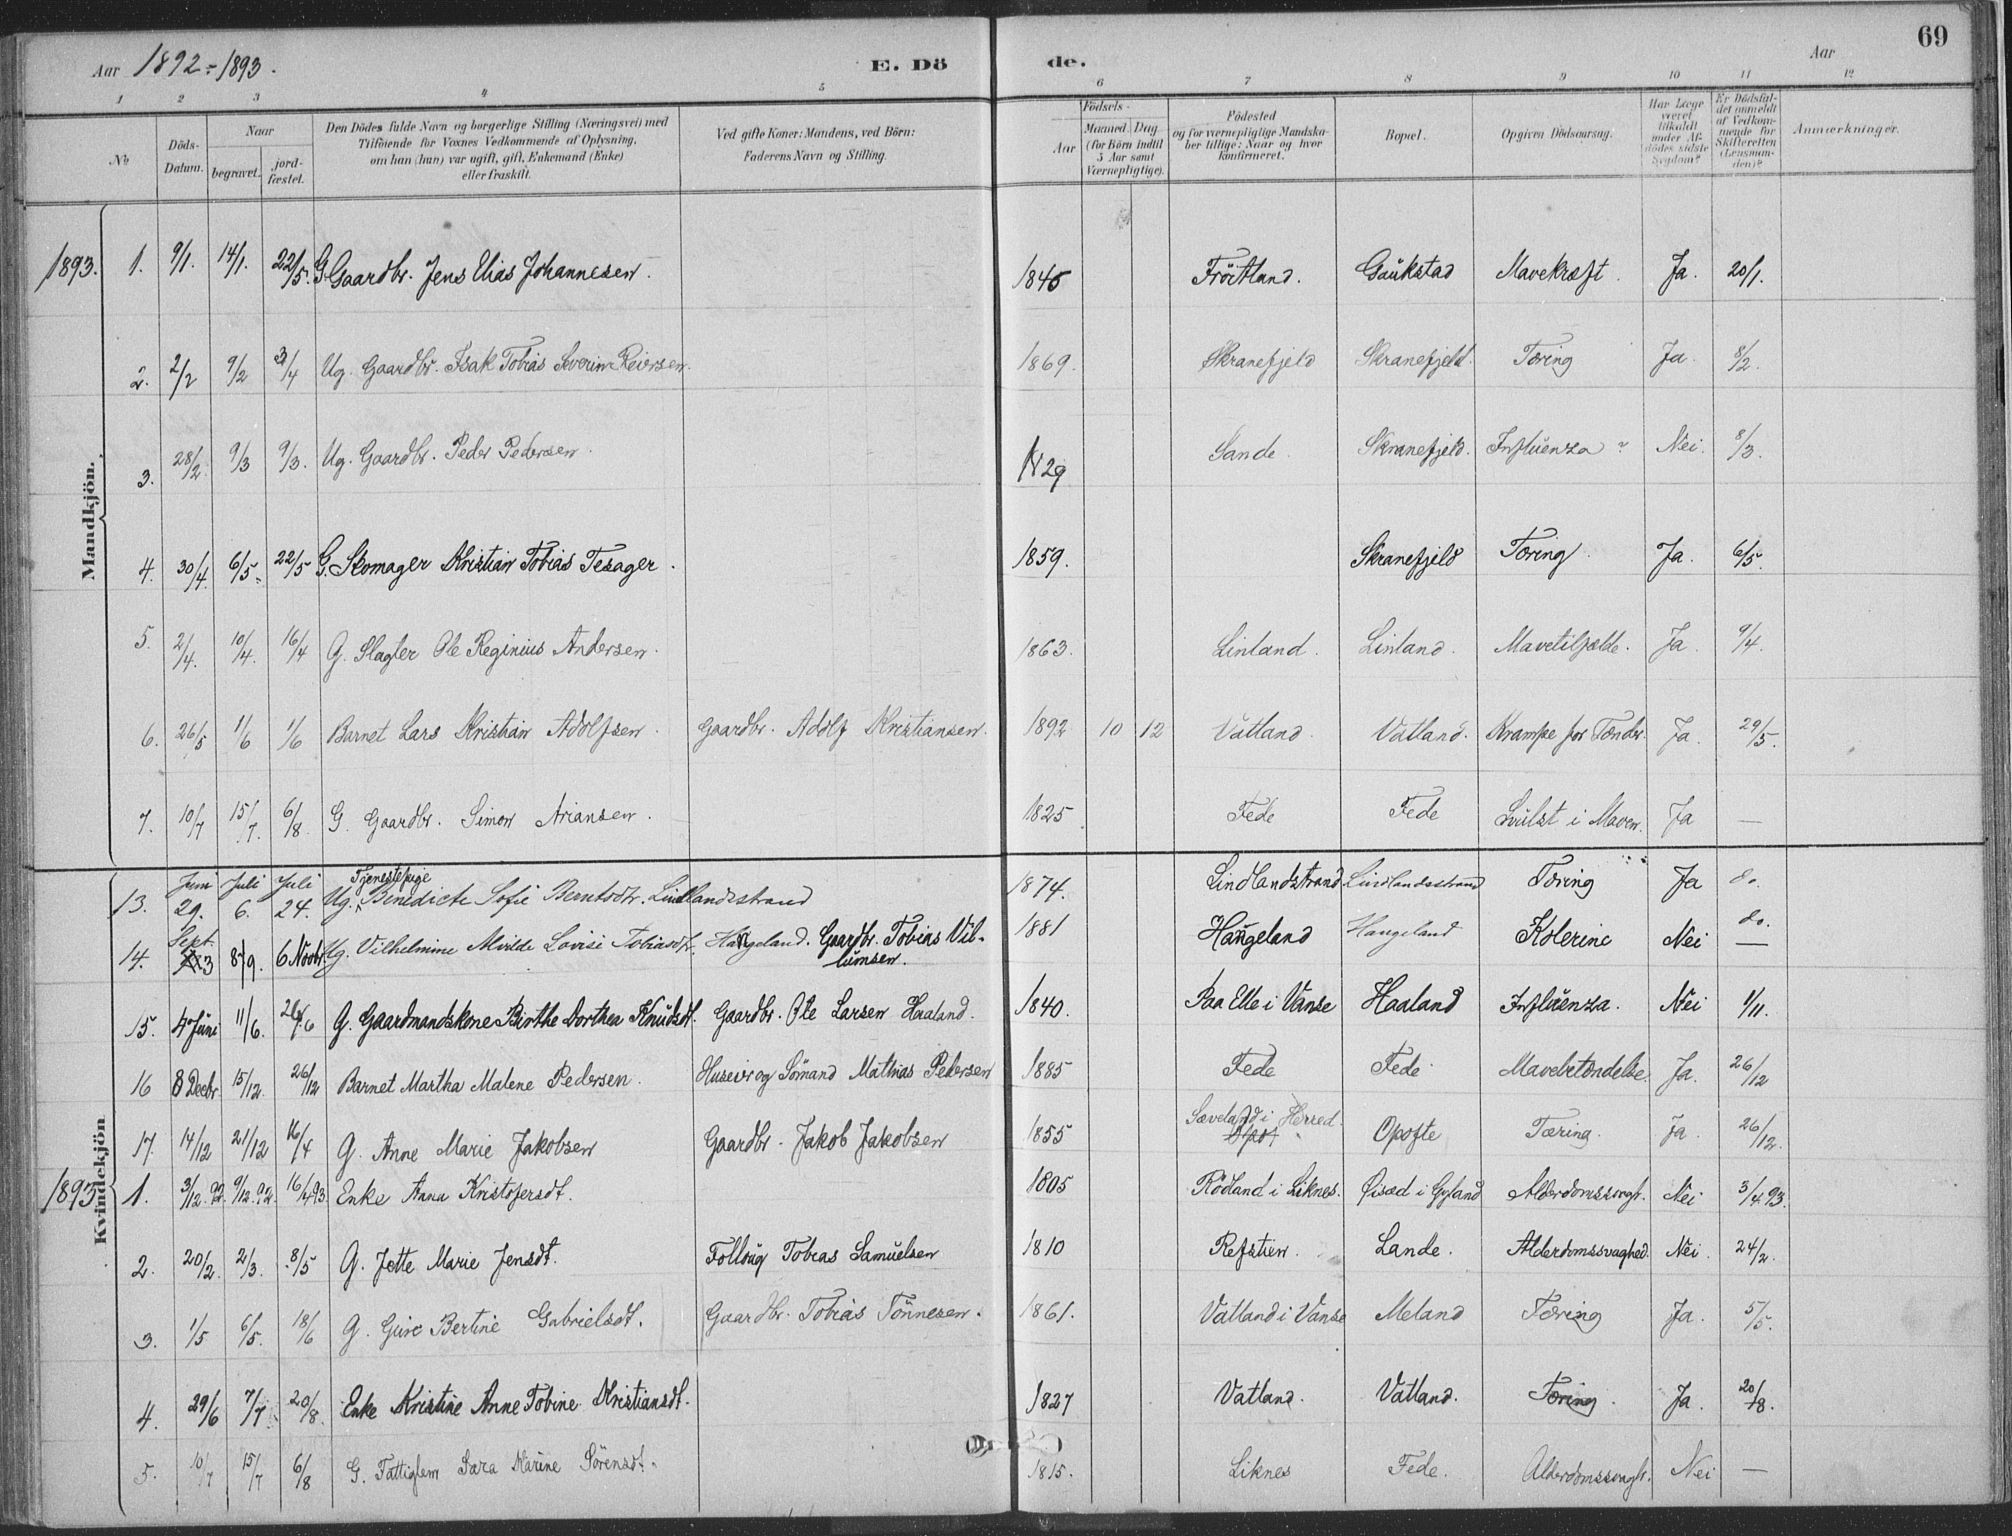 Aar 1892-1893.
E. Dö
de.
Aar
69
1 2 3 4 5 6 7 8 9 10 11 12
No
Döds-Datum.
Naar
begravet.
jord-fæstet.
Den Dödes fulde Navn og borgerlige Stilling (Næringsvei) med
Tilföiende for Voxnes Vedkommende af Oplysning,
om han (hun) var ugift, gift, Enkemand (Enke)
eller fraskilt.
Ved gifte Koner: Mandens, ved Börn:
Faderens Navn og Stilling.
Födsels-
Aar
Maaned. Dag.
(for Börn indtil
5 Aar samt
Værnepligtige).
Födested
og for værnepligtige Mandska-
ber tillige: Naar og hvor
konfirmeret.
Bopæl.
Opgiven Dödsaarsag.
Har Læge
været
tilkaldt
under Af-
dödes sidste
Sygdom?
Er Dödsfal-
det anmeldt
af Vedkom-
mende for
Skifteretten
(Lensman-
den)?
Anmærkninger.
Mandkjön.
1893. 1. 9/1. 14/1. 22/5. G. Gaardbr. Jens Elias Johannesen. 1845 Fröitland. Gaukstad Mavekræft. Ja. 20/1.
2. 2/2 9/2 3/4 Ug. Gaardbr. Isak Tobias Severin Reiersen. 1869. Skranefjeld Skranefjeld. Tæring Ja. 8/2.
3. 28/2. 9/3 9/3. Ug. Gaardbr. Peder Pedersen. 1829 Sande. Skranefjeld. Influenza Nei. 8/3.
4. 30/4. 6/5. 22/5 G. Skomager Kristian Tobias Tesager. 1859. Skranefjeld Tæring. Ja. 6/5.
5. 2/4. 10/4. 16/4 G. Slagter Ole Reginius Andersen. 1863. Linland. Linland. Mavetilfælde. Ja. 9/4.
6. 26/5 1/6 1/6 Barnet Lars Kristian Adolfsen. Gaardbr. Adolf Kristiansen. 1892 10 12 Vatland. Vatland. Krampe for Tænder. Ja. 29/5.
7. 10/7 15/7. 6/8. G. Gaardbr. Simon Ariansen. 1825 Fede Fede Svulst i Maven. Ja —
Kvindekjön
13. Juni 29. Juli 6. Juli 24. Ug. Tjenestepige Benedicte Sofie Berntsdtr. Lindlandsstrand 1874. Lindlandstrand Lindlandsstrand Tæring Ja do.
14. Sept. 3 8/9. 6 Novbr. Ug. Vilhelmine Mvilde Lovise Tobiasdtr. Haugeland. Gaardbr. Tobias Vil-
lumsen. 1881 Haugeland Haugeland Kolerine Nei do. —
15. 4 Juni 11/6. 26/6 G. Gaardmandskone Birthe Dorthea Knudsdt. Gaardbr. Ole Larsen Haaland. 1840. Paa Elle i Vanse Haaland Influenza. Nei 1/11.
16 8 Decbr. 15/12. 26/12 Barnet Martha Malene Pedersen. Huseier og Sömand Mathias Pedersen 1885 Fede Fede Mavebetændelse. Ja. 26/12
17. 14/12 21/12 16/4 G. Anne Marie Jakobsen Gaardbr. Jakob Jakobsen 1855 Sæveland i Herred. Opofte Tæring. Ja. 26/12.
1893 1. 3/12.92. 9/12.92. 16/4 93. Enke Anna Kristofersdt. 1805 Rödland i Liknes. Öisæd i Gyland Alderdomssvagh. Nei 3/4 93.
2. 20/2. 2/3. 8/5 G. Jotte Marie Jensdt. Folloug Tobias Samuelsen 1810 Refstien. Lande. Alderdomssvaghed. Nei. 24/2.
3. 1/5 6/5. 18/6 G. Guro Bertine Gabrielsdt. Gaardbr. Tobias Tönnesen. 1861. Vatland i Vanse Meland Tæring Ja. 5/5.
4. 29/6 7/7 20/8. Enke Kristine Anne Tobine Kristiansdt. 1827 Vatland. Vatland. Tæring. Ja. 20/8.
5. 10/7 15/7 6/8 G. Fattiglem Sara Marine Sörensdt. 1815. Liknes Fede. Alderdomssvagh. Nei —